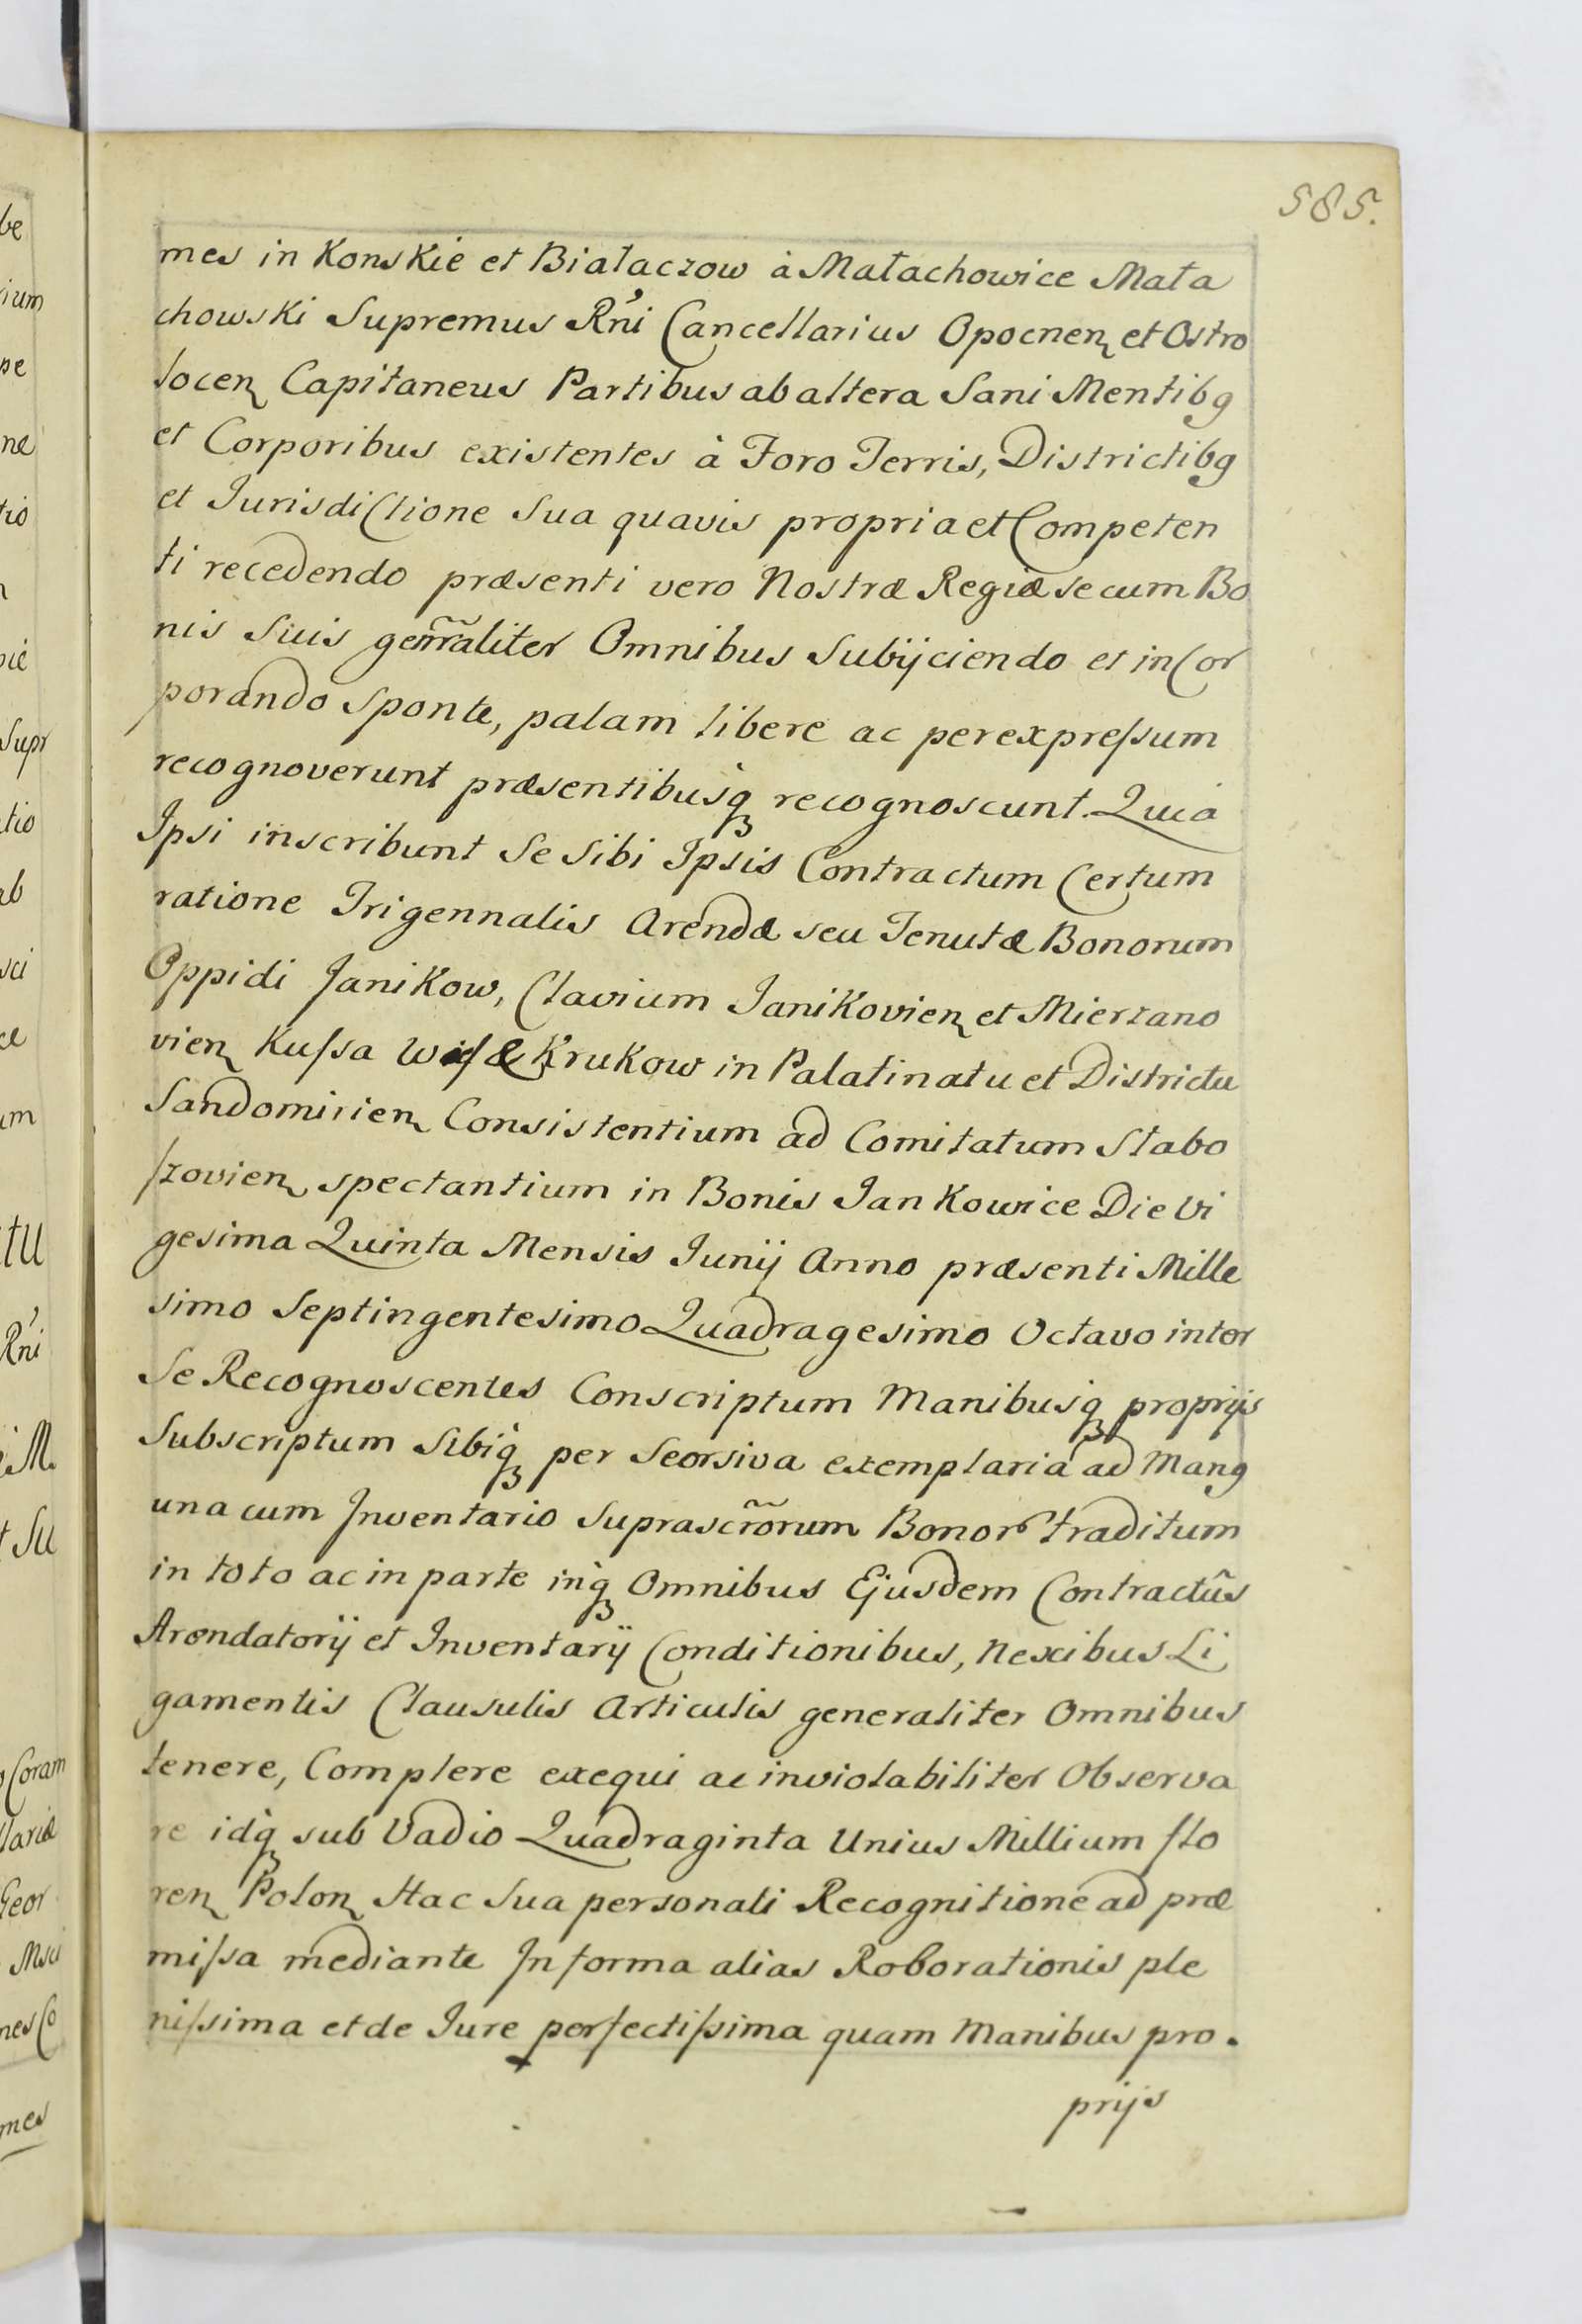 585.
mes in Konskie et Białaczow à Małachowice Mała
chowski Supremus Rni Cancellarius Opocnen et Ostro
locen Capitaneus Partibus ab altera Sani Mentibg
et Corporibus existentes à Foro Terris, Districtibg
et Jurisdictione Sua quavis propria et Competen
ti recedendo præsenti vero Nostræ Regiæ se cum Bo
nis Suis genrãliter Omnibus Subijciendo et incor
porando sponte, palam libere ac per expressum
recognoverunt præsentibusq recognoscunt. Quia
Ipsi inscribunt Se Sibi Ipsis Contractum Certum
ratione Trigennalis Arendæ seu Tenutæ Bononum
Oppidi Janikow, Clavium Janikovien et Mierzano
vien Kussa Krukow in Palatinatu et Districtu
Sandomirien Consistentium ad Comitatum Stabo
szovien spectantium in Bonis Jankowice Die Vi
gesima Quinta Mensis Junij Anno præsenti Mille
simo Septingentesimo Quadragesimo Octavo inter
Se Recognoscentes Conscriptum Manibusq proprijs
Subscriptum Sibiq per Seorsiva exemplaria ad Mang
una cum Inventario Suprascrõrum Bonor traditum
in toto ac in parte inq Omnibus Ejusdem Contractûs
Arendatorij et Inventarij Conditionibus, Nexibus Li
gamentis Clausulis Articulis generaliter Omnibus
tenere, Complere exequi ac inviolabiliter Observa
re idq sub Vadio Quadraginta Unius Millium flo
ren Polon Hac Sua personali Recognitione ad præ
missa mediante In forma alias Roborationis ple
nissima et de Jure perfectissima quam Manibus pro.
prijs